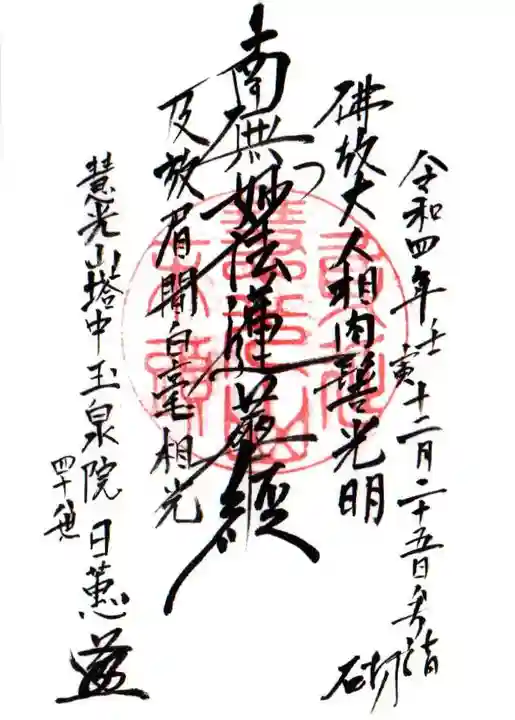 令和四年壬寅十二月二十五日参詣
砌
佛放大人相肉髻光明
南無妙法蓮華経
及放眉間白毫相光
慧光山塔中玉泉院
四十世
日